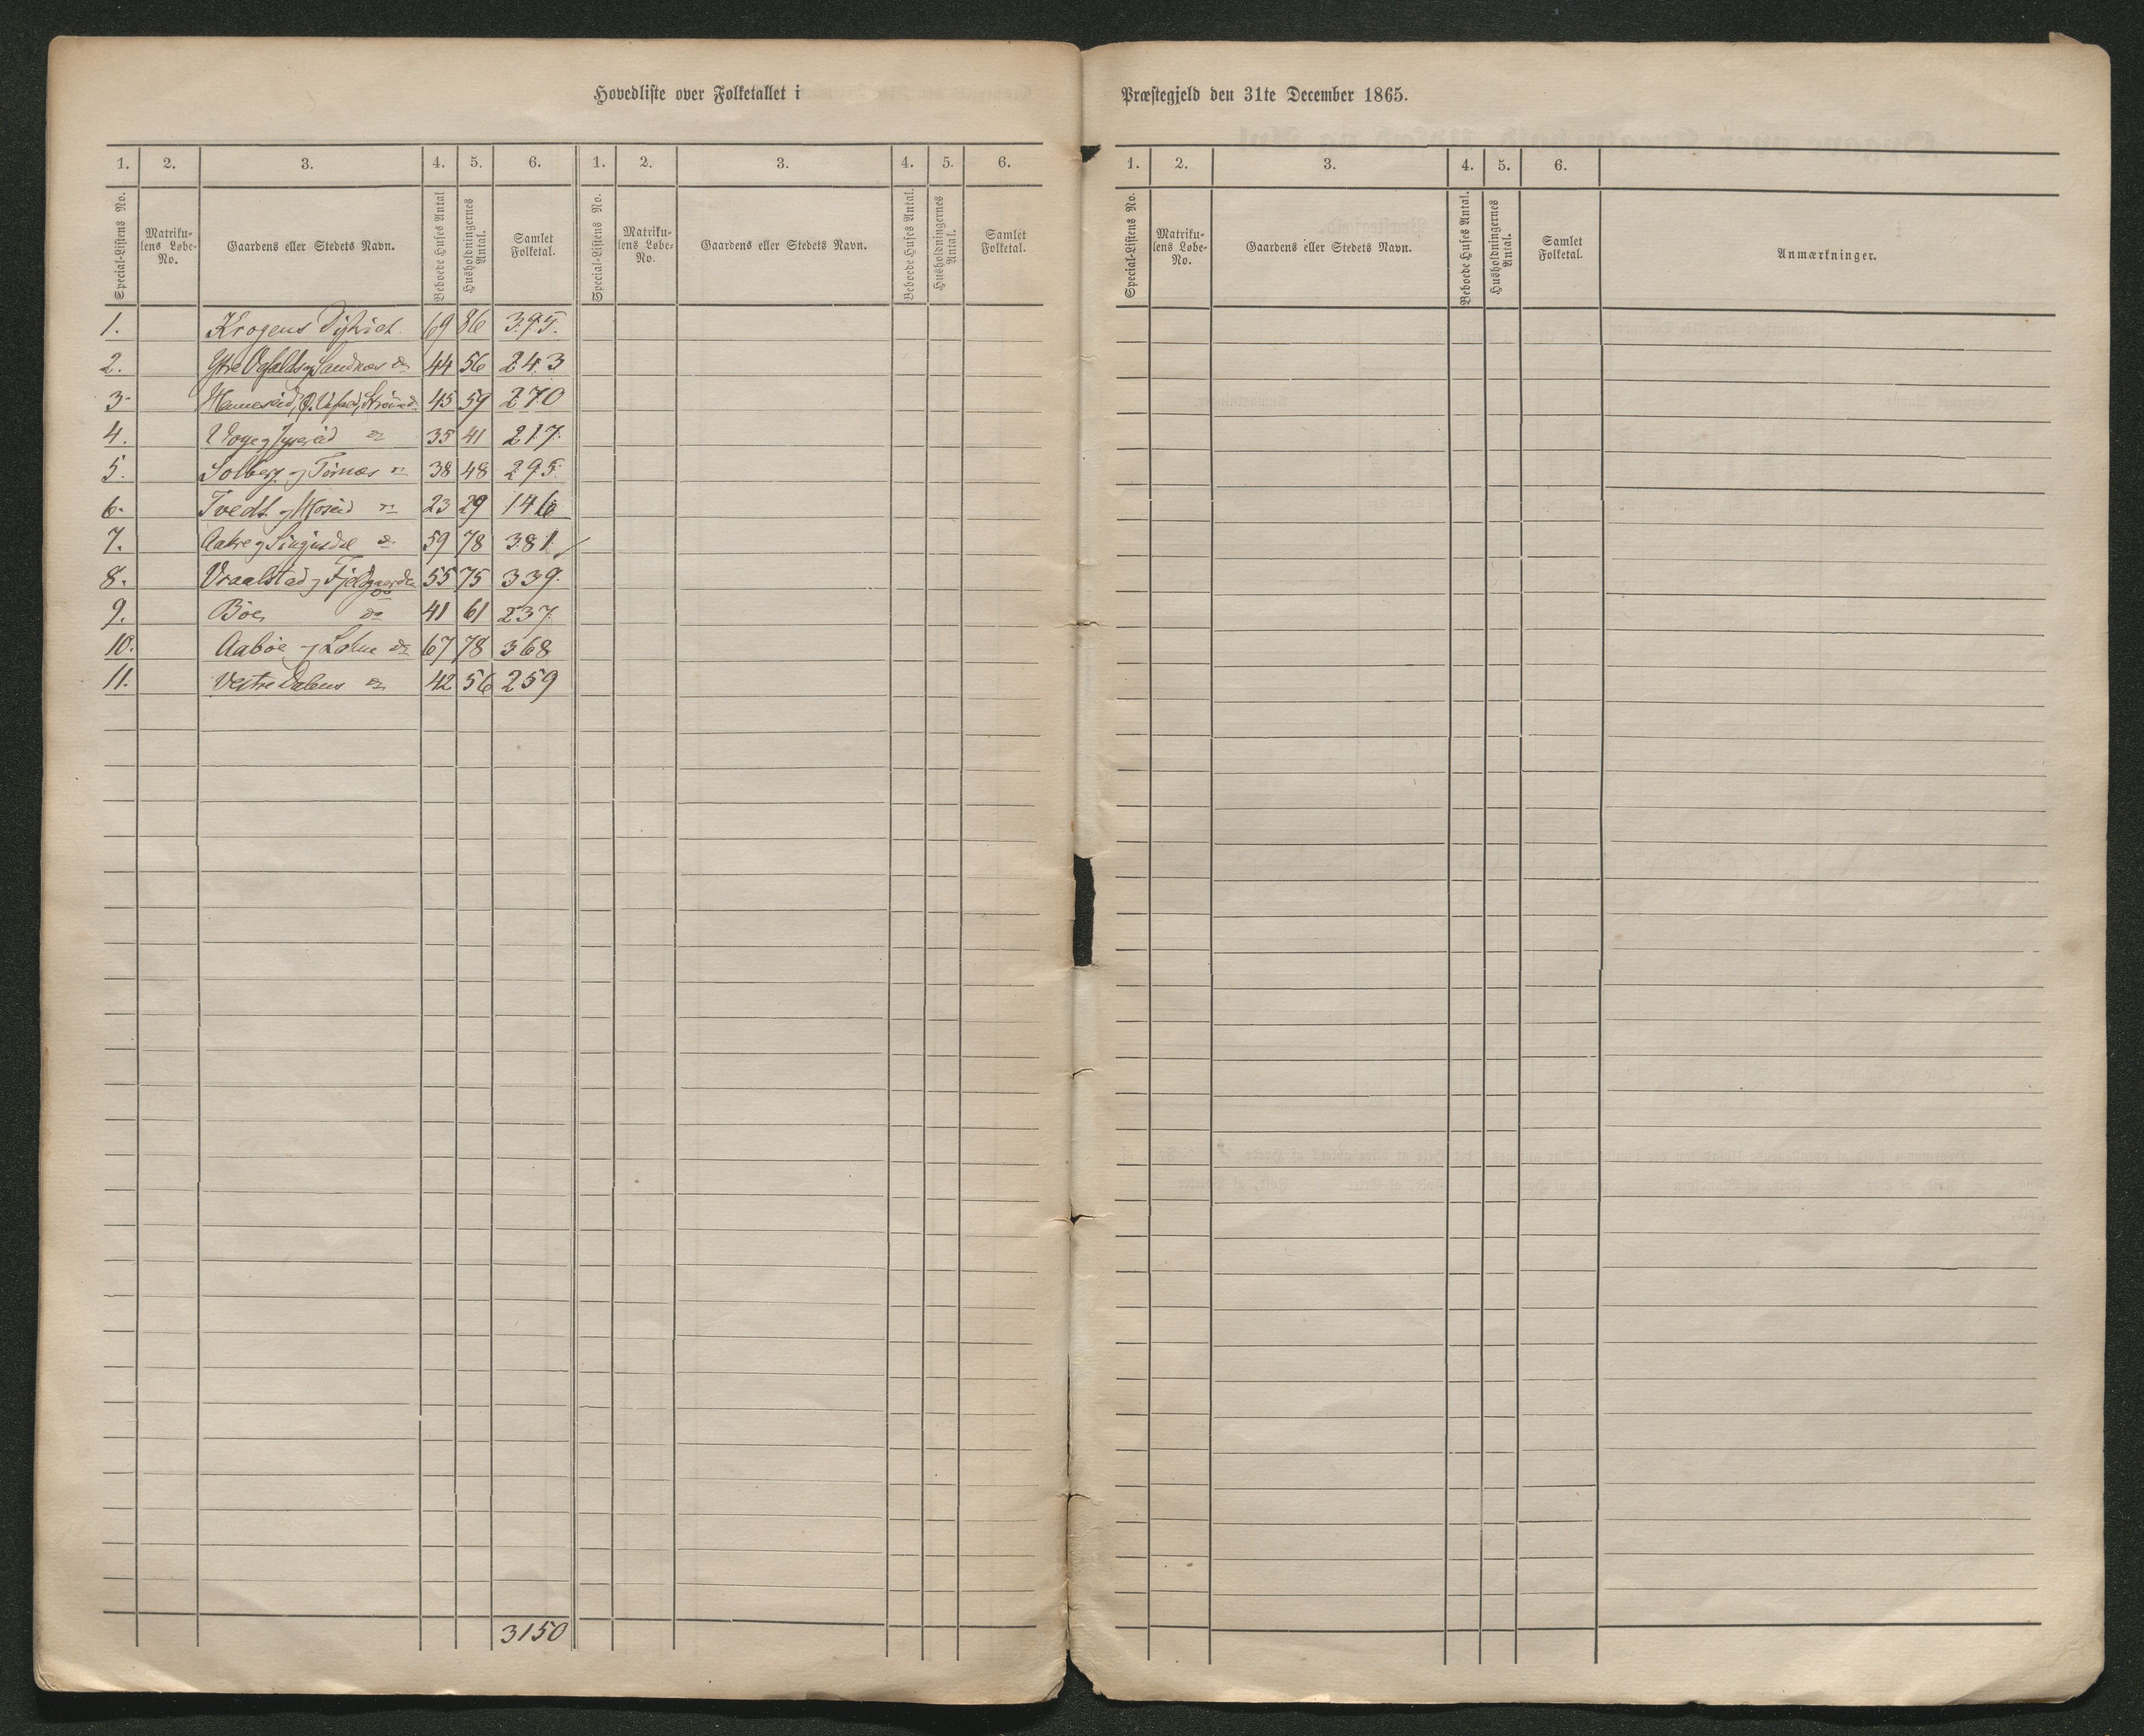 Hovedliste over Folketallet i Præstegjeld den 31te December 1865.
1. 2. 3. 4. 5. 6. 1. 2. 3. 4. 5. 6. 1. 2. 3. 4. 5. 6.
Special-Listens No. Matriku-lens Løbe-No. Gaardens eller Stedets Navn. Beboede Huses Antal Husholdningernes Antal. Samlet Folketal. Special-Listens No. Matriku-lens Løbe-No. Gaardens eller Stedets Navn. Beboede Huses Antal. Husholdningernes Antal. Samlet Folketal. Special-Listens No. Matriku-lens Løbe-No. Gaardens eller Stedets Navn. Beboede Huses Antal. Husholdningernes Antal. Samlet Folketal. Anmærkninger.
1. Krogens District 69 86 395.
2. Ytre og Sandnæs do 44 56 243
3. 45 59 270
4. og do 35 41 217.
5. Solberg og Tørnæs do 38 48 295
6. Tvedt og Moseid do 23 29 146
7. Aakre og do 59 78 381
8. Vraalstad og Fjeldgaardene do 55 75 339.
9. Bøe do 41 61 237.
10. Aabøe og Lohne do 67 78 368
11. Vestre Dalens do 42 56 259
3150